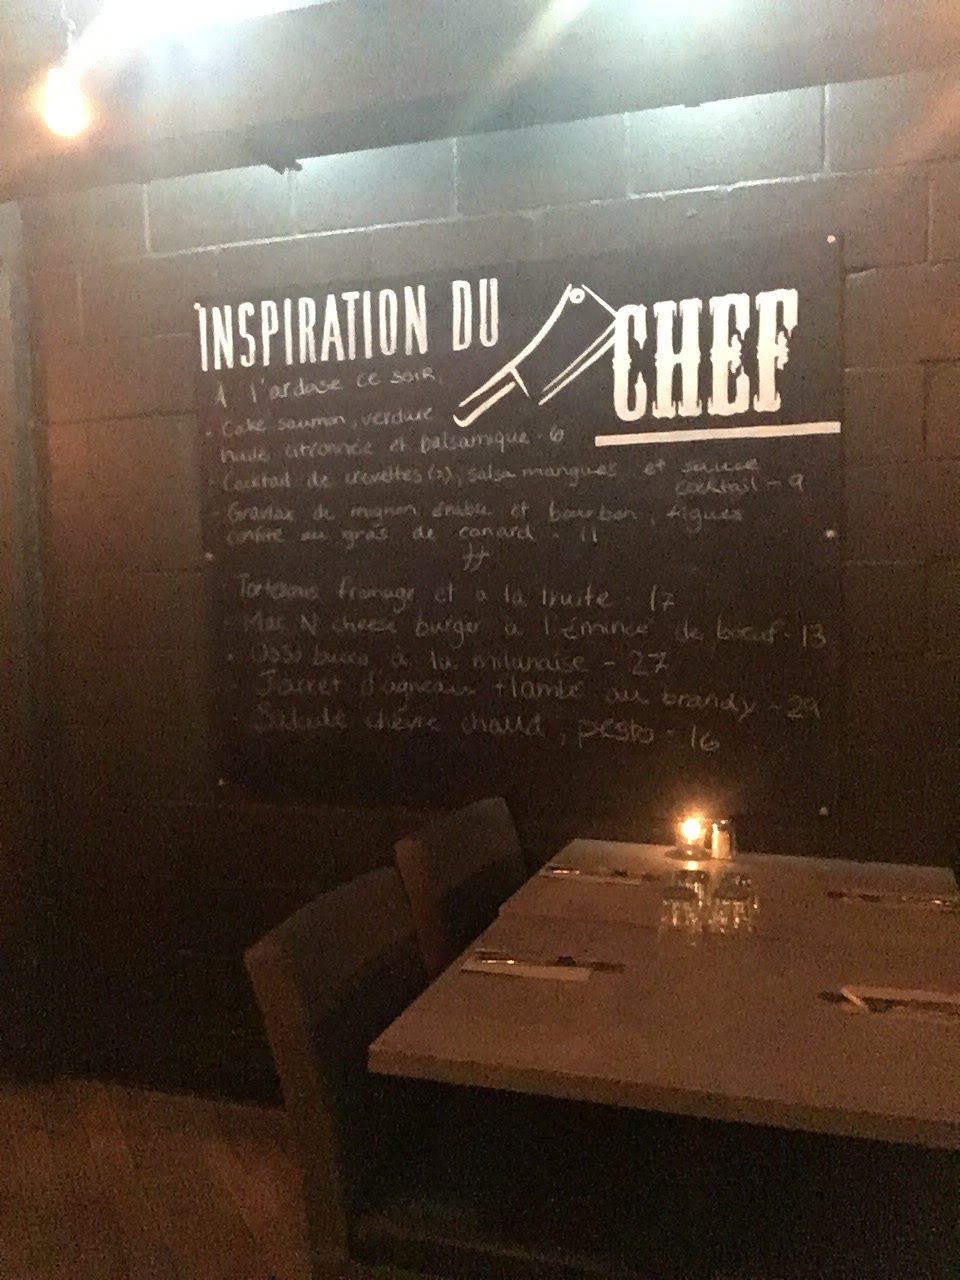 INSPIRATION DU CHEF
À l'ardoise ce soir
- Cake saumon, verdure
huile citronnée et balsamique - 6
- Cocktail de crevettes (7), salsa mangues et sauce
cocktail - 9
- Gravlax de mignon érable et bourbon, figues
confite au gras de canard - 11
#
Tortellinis fromage et à la truite - 17
- Mac N cheese burger à l'émincé de boeuf - 13
- Osso bucco à la milanaise - 27
- Jarret d'agneau flambé au brandy - 29
- Salade chèvre chaud, pesto - 16